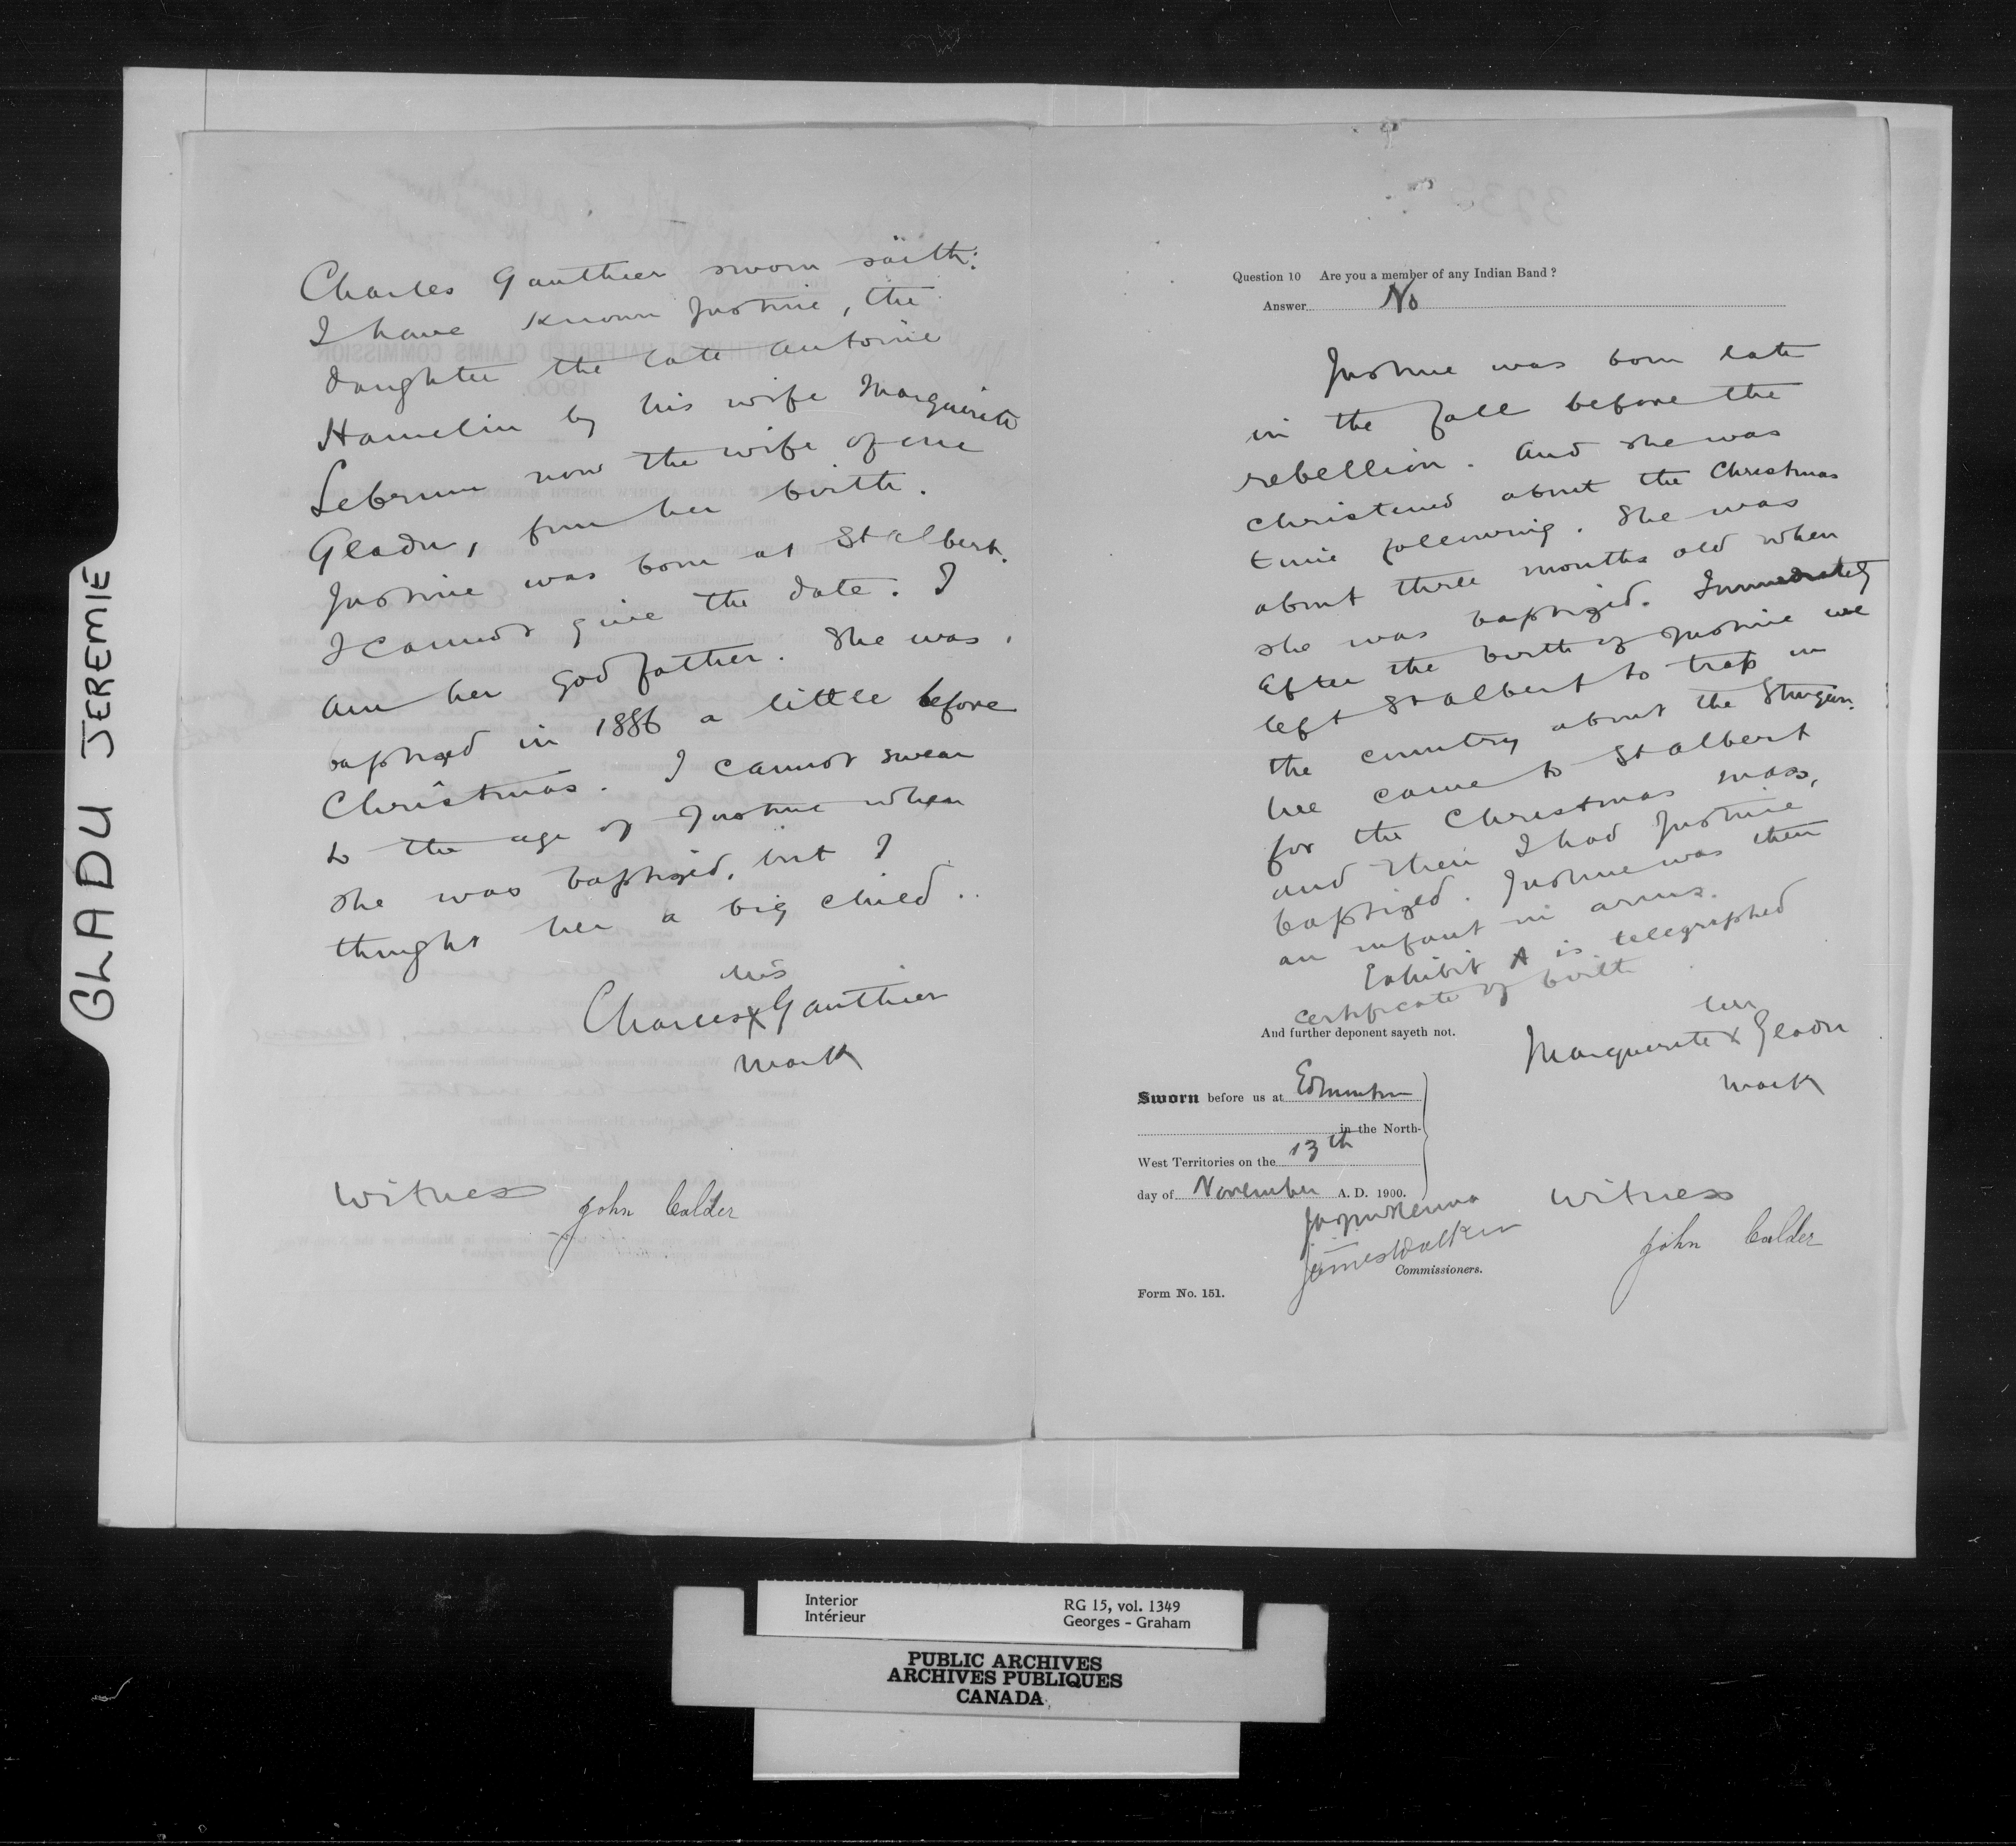 GLADU JEREMIE
Charles Gauthier sworn saith:
I have known Justine, the
daughter the late Antoine
Hamelin by his wife Marguerite
Lebrun now the wife of one
Gladu, from her birth.
Justine was born at St Albert.
I cannot give the date. I
am her god father. She was
baptized in 1886 a little before
Christmas. I cannot swear
to the age of Justine when
she was baptized, but I
thought her a big child.
his
Charles X Gauthier
mark
Witness John Calder
Question 10 Are you a member of any Indian Band ?
Answer No
Justine was born late
in the fall before the
rebellion. And she was
christened about the Christmas
time following. She was
about three months old when
she was baptized. Immediately
after the birth of Justine we
left St Albert to trap in
the country about the Sturgeon.
We came to St Albert
for the Christmas mass,
and then I had Justine
baptized. Justine was then
an infant in arms.
Exhibit A is telegraphed
certificate of birth
And further deponent sayeth not.
her
Marguerite X Gladu
mark
Sworn before us at Edmonton
in the North-
West Territories on the 13th
day of November A. D. 1900.
Witness
James Walker
John Calder
Commissioners.
Form No. 151.
Interior
Intérieur
RG 15, vol. 1349
Georges - Graham
PUBLIC ARCHIVES
ARCHIVES PUBLIQUES
CANADA